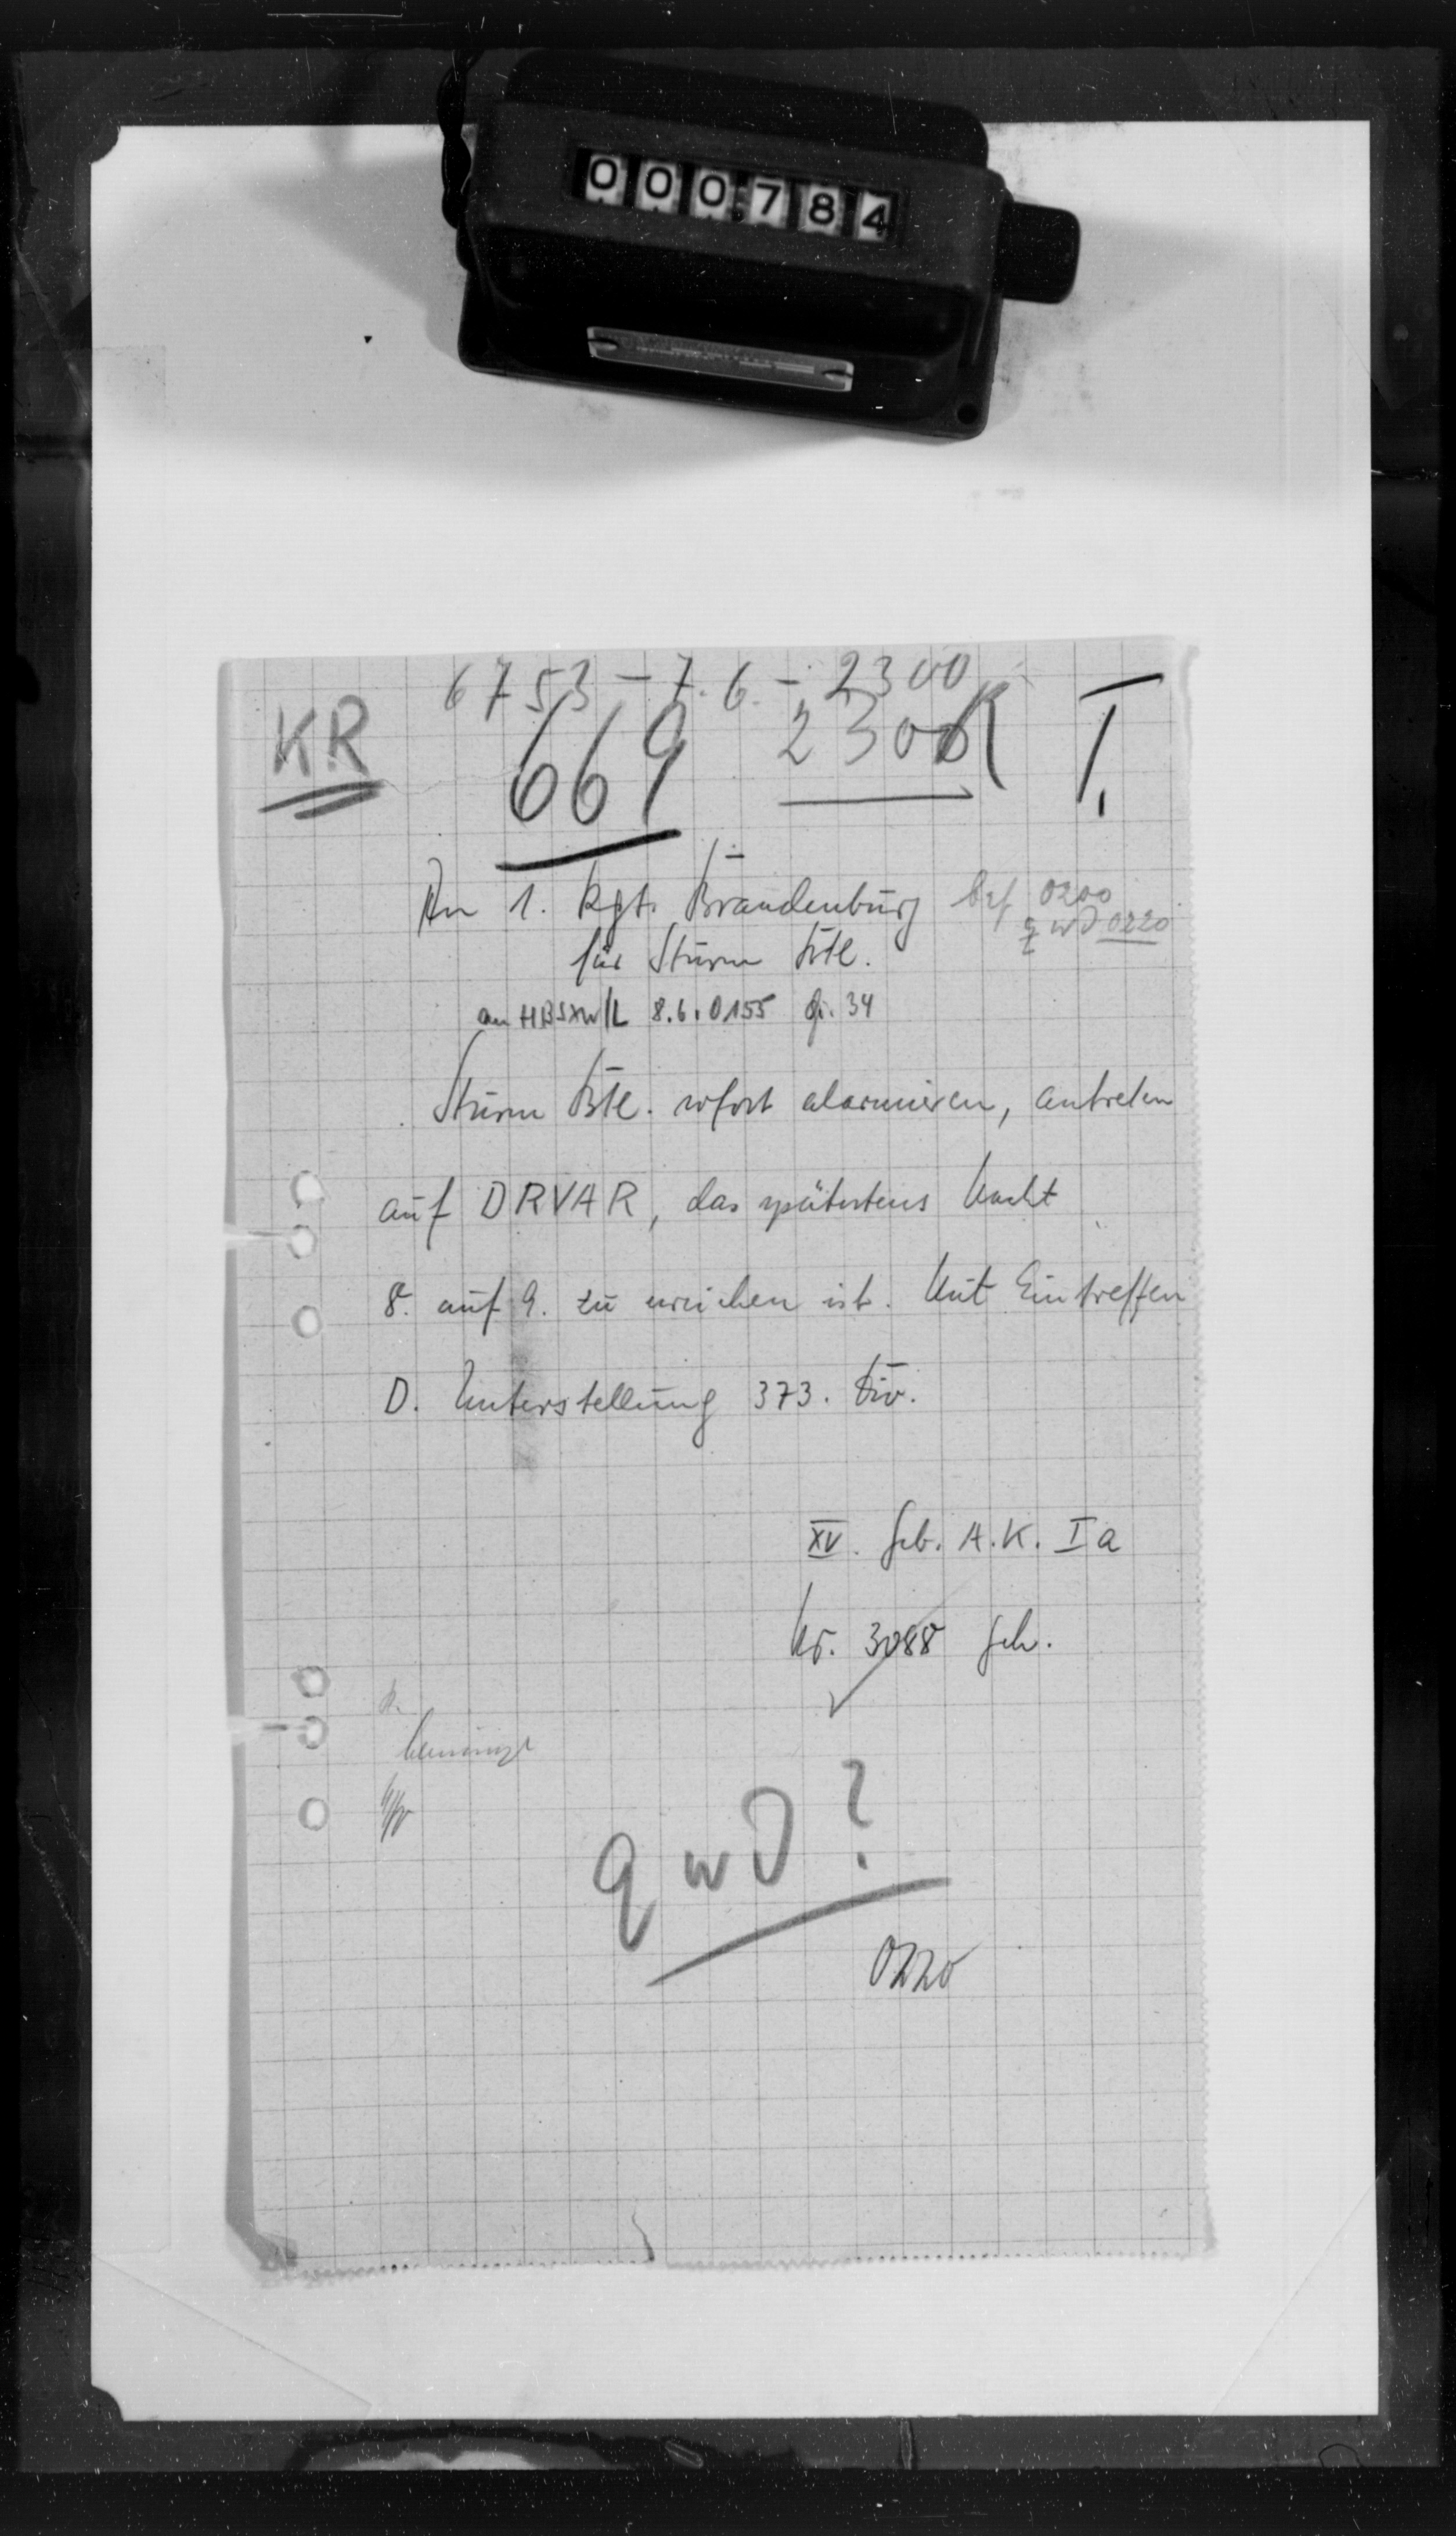 000784
6753 - 7.6. - 2300
KR 669 2300 T.
An 1. Rgt. Brandenburg bef 0200
für Sturm Btl. qwd 0220
an HBSXW/L 8.6. 0155 34
Sturm Btl. sofort alarmieren, antreten
auf DRVAR, das spätestens Nacht
8. auf 9. zu erreichen ist. Mit Eintreffen
D. Unterstellung 373. Div.
XV. Geb. A.K. Ia
Nr. 3088 geh.
qwd?
0220